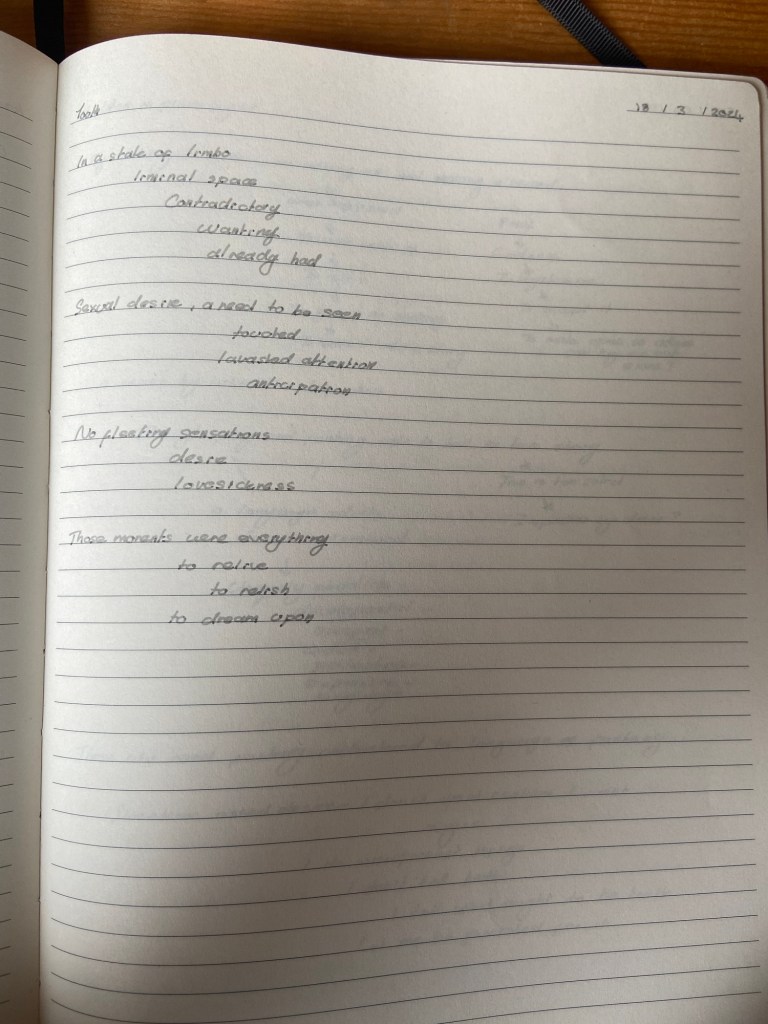 18 / 3 / 2024
In a state of limbo
liminal space
Contradictory
wanting
already had
Sexual desire, a need to be seen
touched
lavasted attention
anticipation
No fleeting sensations
desire
lovesickness
Those moments were everything
to relive
to relish
to dream upon